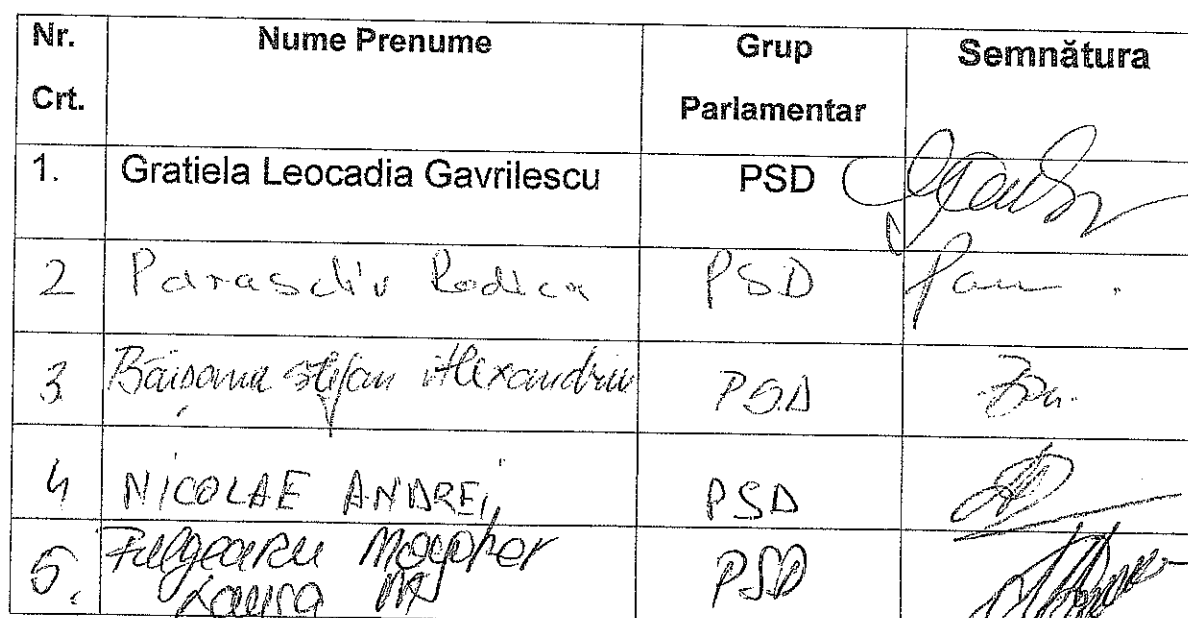 Nr. Crt. Nume Prenume Grup Parlamentar Semnătura
1. Gratiela Leocadia Gavrilescu PSD
2 Paraschiv Rodica PSD
3. Băișanu Ștefan Alexandru PSD
4 NICOLAE ANDREI PSD
5. Fulgeanu Moagher PSD
Laura M